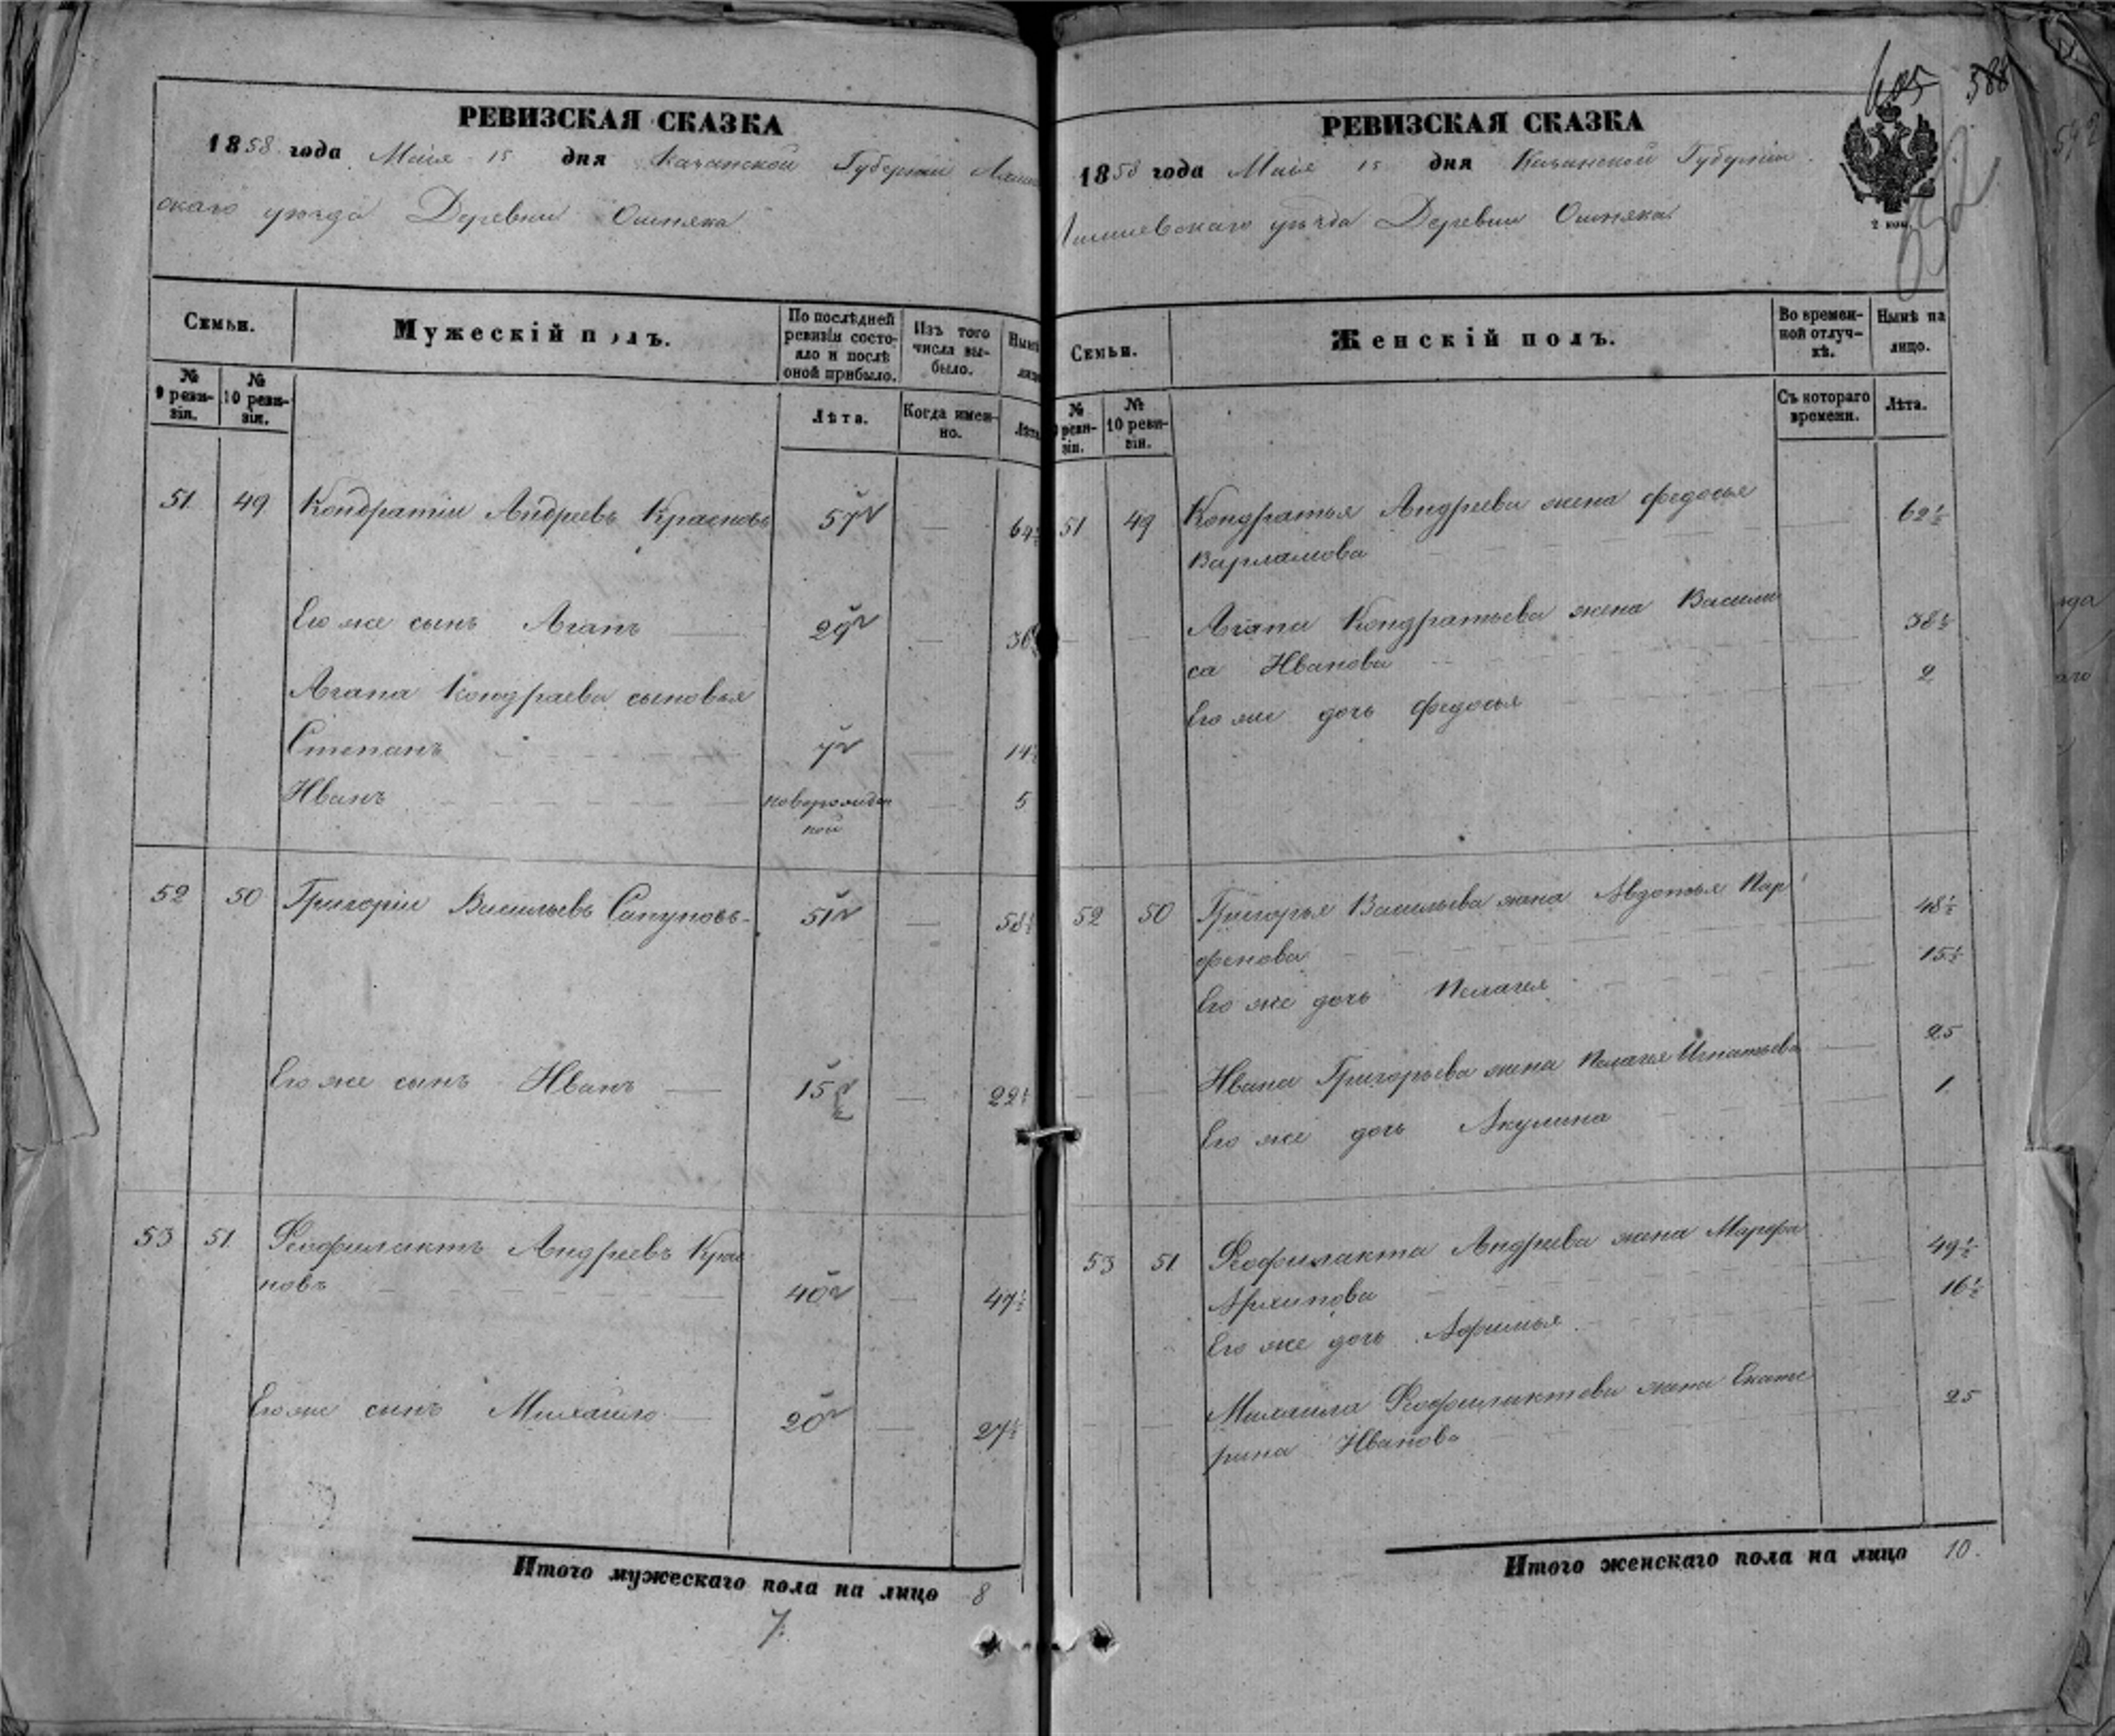 РЕВИЗСКАЯ СКАЗКА
1858 года Маія 15 дня Казанской Губерніи
скаго уѣзда Деревни Ошняка
Семьи.
Мужескій полъ.
По послѣдней ревизіи состояло и послѣ оной прибыло.
Изъ того числа выбыло.
№ 9 ревизіи.
№ 10 ревизіи.
Лѣта.
Когда именно.
Лѣта
51 49 Кондратіи Андреевъ Красновъ 57 — 64½
Его же сынъ Агапъ 29 — 36
Агапа Кондраева сыновья
Степанъ 7 — 14
Иванъ новорожден — 5
ной
52 50 Григоріи Васильевъ Сапуновъ 51 — 58½
Его же сынъ Иванъ 15 — 22½
53 51 Феофилактъ Андреевъ Крас
новъ 40 — 47½
Его же сынъ Михайло 20 — 27½
Итого мужескаго пола на лицо 8
7.
605 388
РЕВИЗСКАЯ СКАЗКА
1858 года Маія 15 дня Казанской Губерніи
Лаишевскаго уѣзда Деревни Ошняка
2 коп.
Семьи.
Женскій полъ.
Во временной отлучкѣ.
Нынѣ на лицо.
№ ревизіи.
№ 10 ревизіи.
Съ котораго времени.
Лѣта.
51 49 Кондратья Андреева жена Федосья 62½
Варламова
Агапа Кондратьева жена Васили 38½
са Иванова
Его же дочь Федосья 2
52 50 Григорья Васильева жена Авдотья Пар 48½
фенова
Его же дочь Пелагея 15½
Ивана Григорьева жена Пелагея Игнатьева 25
Его же дочь Акулина 1
53 51 Феофилакта Андреева жена Марфа 49½
Архипова
Его же дочь Афимья 16½
Михаила Феофилактова жена Екате 25
рина Иванова
Итого женскаго пола на лицо 10.